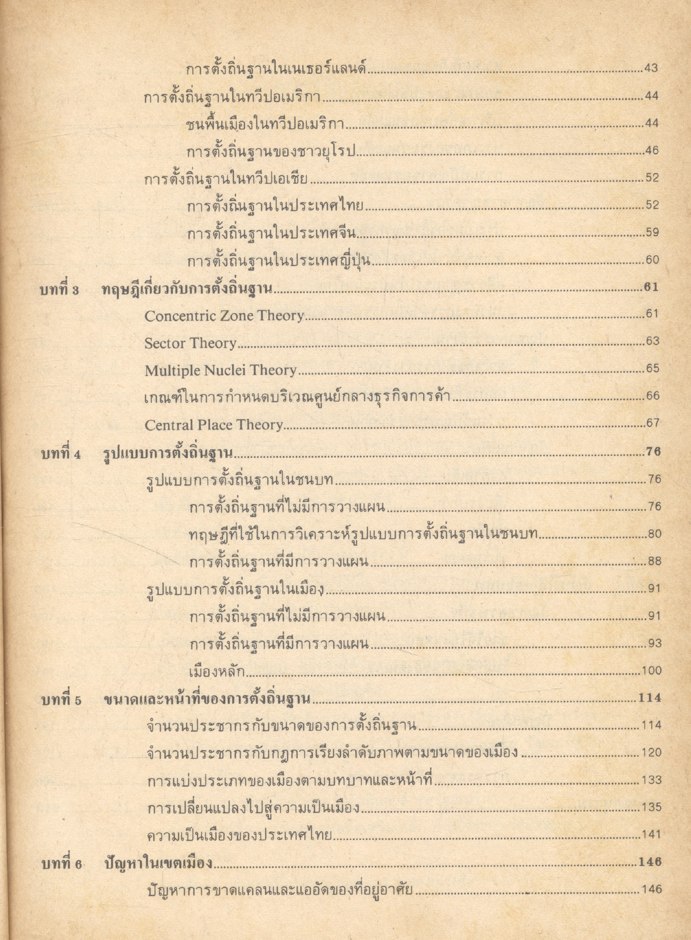 การตั้งถิ่นฐานในเนเธอร์แลนด์.....43
การตั้งถิ่นฐานในทวีปอเมริกา.....44
ชนพื้นเมืองในทวีปอเมริกา.....44
การตั้งถิ่นฐานของชาวยุโรป.....46
การตั้งถิ่นฐานในทวีปเอเชีย.....52
การตั้งถิ่นฐานในประเทศไทย.....52
การตั้งถิ่นฐานในประเทศจีน.....59
การตั้งถิ่นฐานในประเทศญี่ปุ่น.....60
บทที่ 3 ทฤษฎีเกี่ยวกับการตั้งถิ่นฐาน.....61
Concentric Zone Theory.....61
Sector Theory.....63
Multiple Nuclei Theory.....65
เกณฑ์ในการกำหนดบริเวณศูนย์กลางธุรกิจการค้า.....66
Central Place Theory.....67
บทที่ 4 รูปแบบการตั้งถิ่นฐาน.....76
รูปแบบการตั้งถิ่นฐานในชนบท.....76
การตั้งถิ่นฐานที่ไม่มีการวางแผน.....76
ทฤษฎีที่ใช้ในการวิเคราะห์รูปแบบการตั้งถิ่นฐานในชนบท.....80
การตั้งถิ่นฐานที่มีการวางแผน.....88
รูปแบบการตั้งถิ่นฐานในเมือง.....91
การตั้งถิ่นฐานที่ไม่มีการวางแผน.....91
การตั้งถิ่นฐานที่มีการวางแผน.....93
เมืองหลัก.....100
บทที่ 5 ขนาดและหน้าที่ของการตั้งถิ่นฐาน.....114
จำนวนประชากรกับขนาดของการตั้งถิ่นฐาน.....114
จำนวนประชากรกับกฎการเรียงลำดับภาพตามขนาดของเมือง.....120
การแบ่งประเภทของเมืองตามบทบาทและหน้าที่.....133
การเปลี่ยนแปลงไปสู่ความเป็นเมือง.....135
ความเป็นเมืองของประเทศไทย.....141
บทที่ 6 ปัญหาในเขตเมือง.....146
ปัญหาการขาดแคลนและแออัดของที่อยู่อาศัย.....146